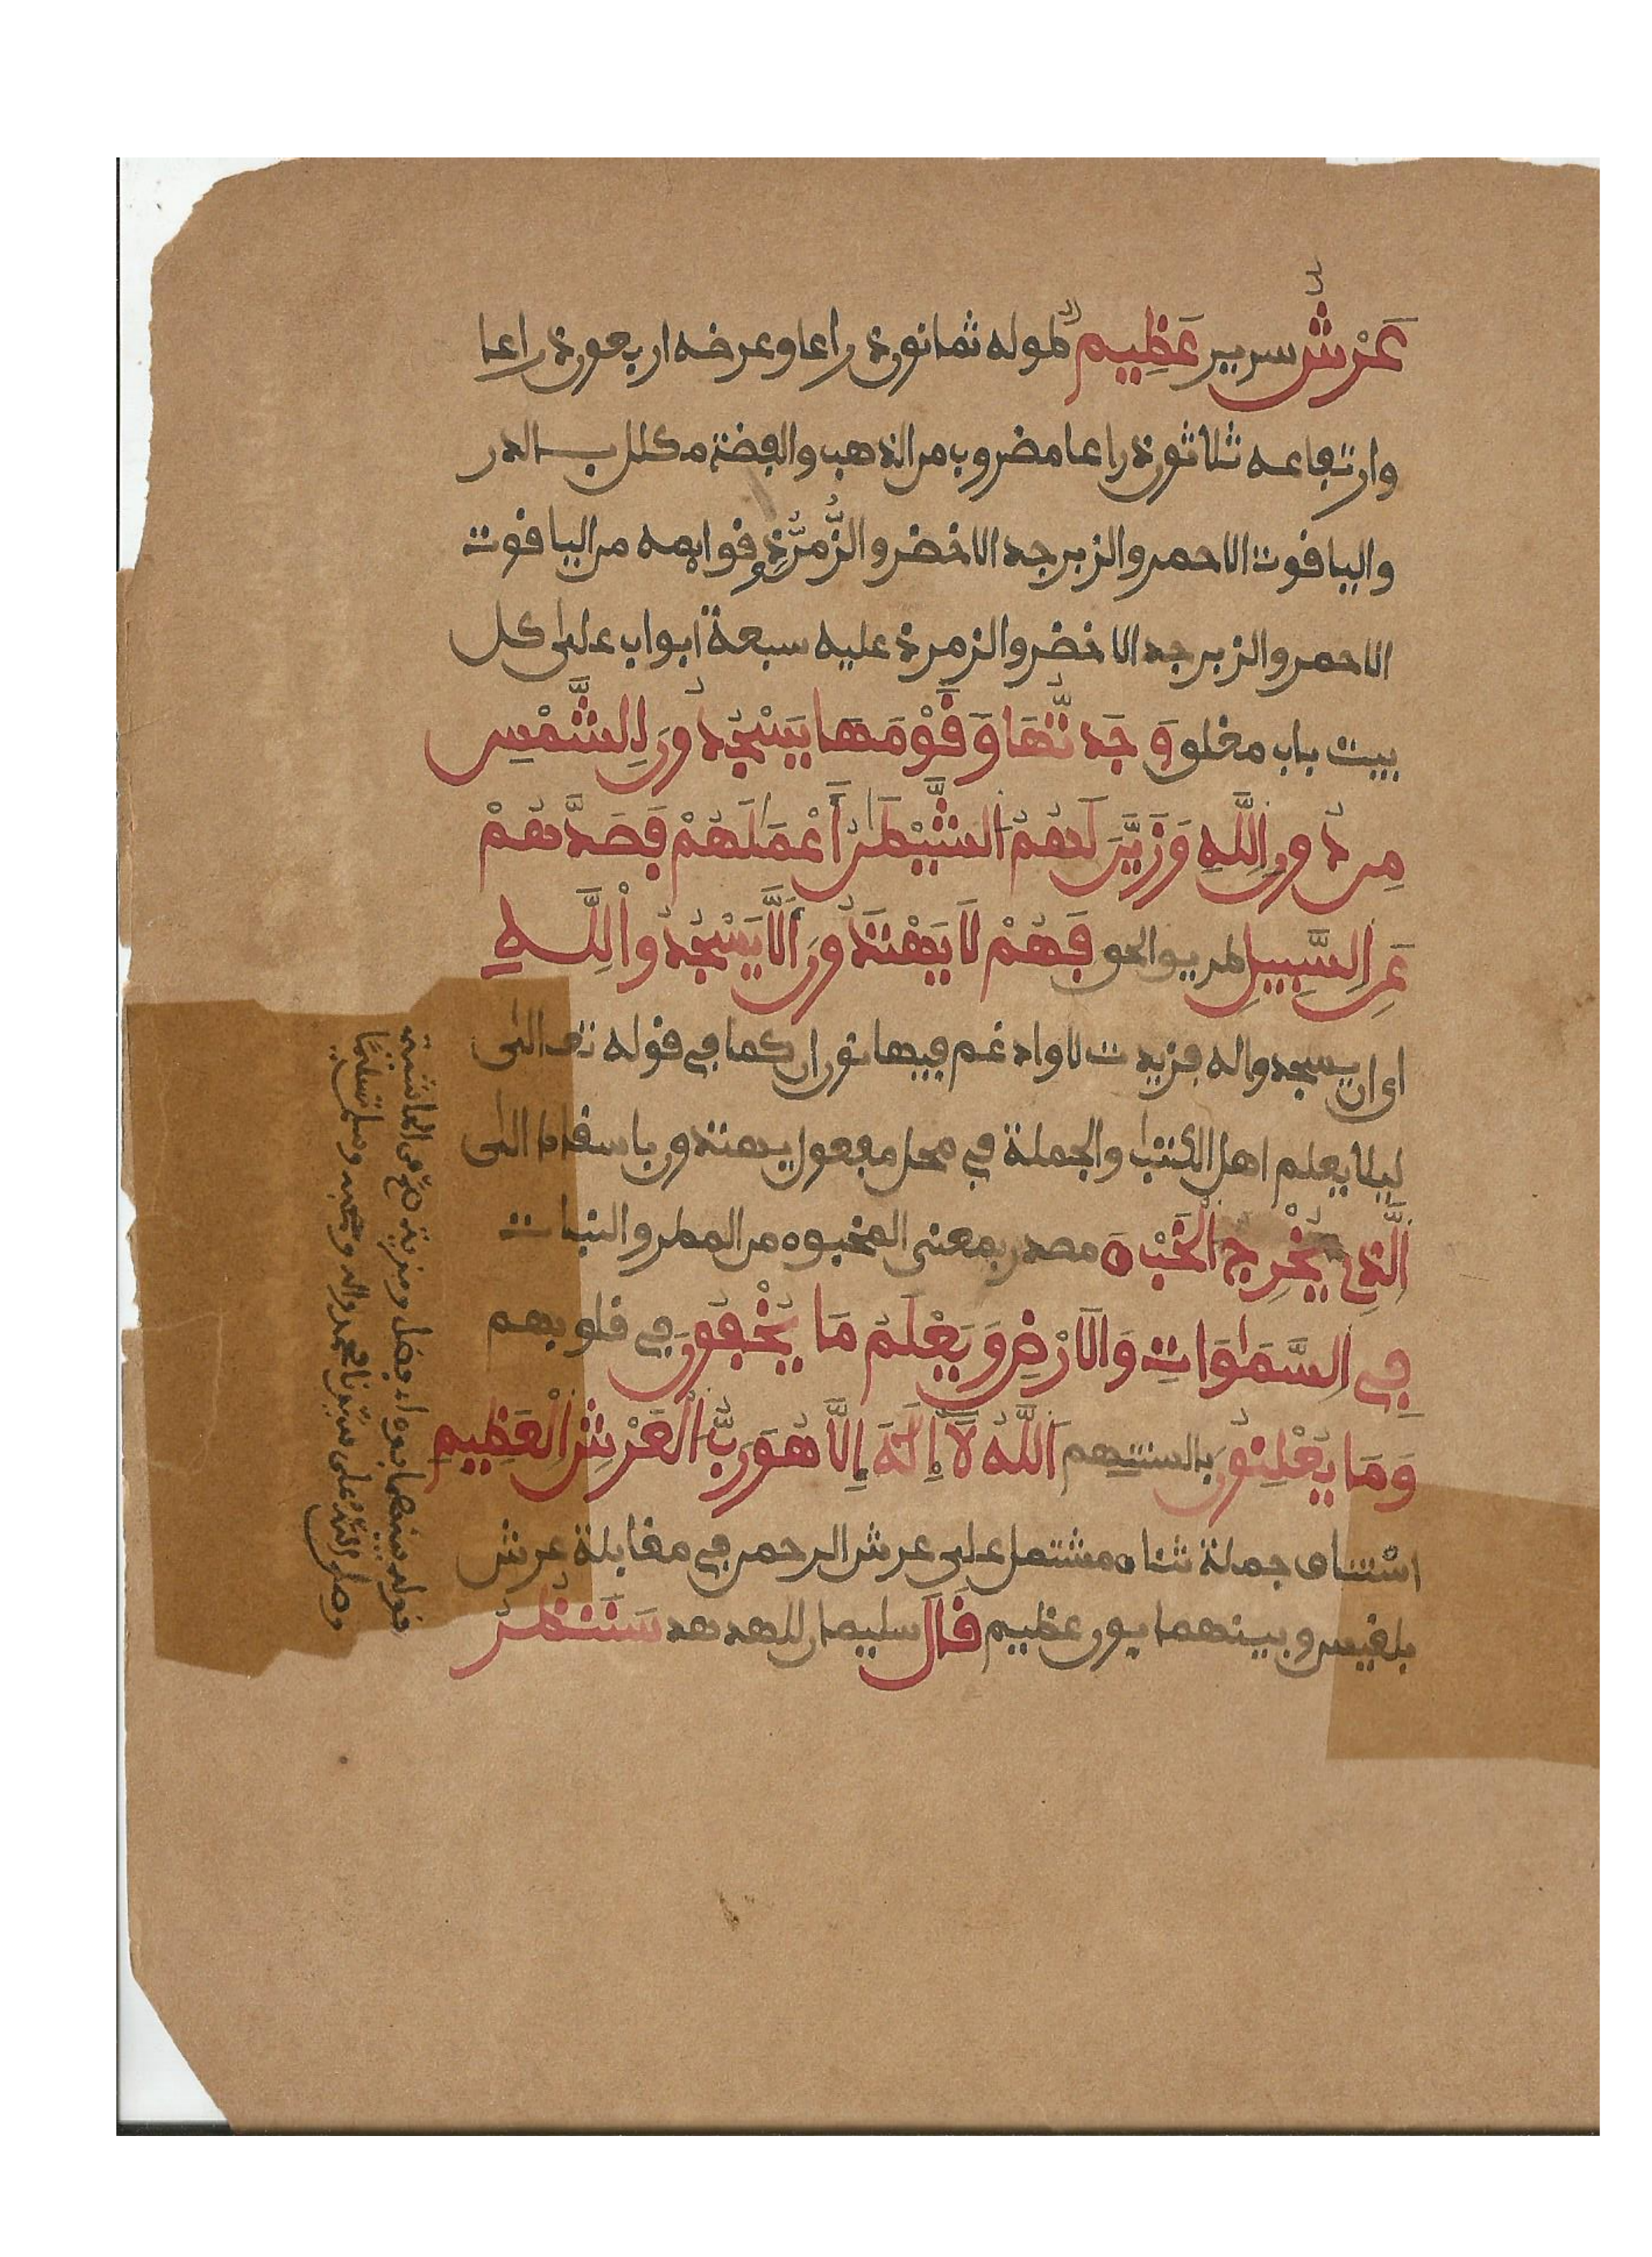 عَرْشٌ سرير عَظِيمٌ طوله ثمانون ذراعا وعرضه اربعون ذراعا
وارتفاعه ثلاثون ذراعا مضروب من الذهب والفضة مكلل بالدر
والياقوت الاحمر والزبرجد الاخضر والزُّمُرُّذِ وقوايمه من الياقوت
الاحمر والزبرجد الاخضر والزمرذ عليه سبعة ابواب على كل
بيت باب مغلق وَجَدتُّهَا وَقَوْمَهَا يَسْجُدُونَ لِلشَّمْسِ
مِن دُونِ اللَّهِ وَزَيَّنَ لَهُمُ الشَّيْطَٰنُ أَعْمَٰلَهُمْ فَصَدَّهُمْ
عَنِ السَّبِيلِ طريق الحق فَهُمْ لَا يَهْتَدُونَ أَلَّا يَسْجُدُواْ لِلَّهِ
اى ان يسجدوا له فزيدت لا وادغم فيها نون ان كما في قوله تعالى
ليلا يعلم اهل الكتٰب والجملة في محل مفعول يهتدون باسقاط الى
الَّذِي يُخْرِجُ الْخَبْءَ مصدر بمعنى المخبوء من المطر والنبات
فِي السَّمَٰوَاتِ وَالَارْضِ وَيَعْلَمُ مَا يُخْفُونَ في قلوبهم
وَمَا يُعْلِنُونَ بالسنتهم اللَّهُ لَآ إِلَٰهَ إِلَّا هُوَ رَبُّ الْعَرْشِ الْعَظِيمِ
استيناف جملة ثناء مشتمل على عرش الرحمن في مقابلة عرش
بلقيس وبينهما بون عظيم قَالَ سليمان للهدهد سَنَنظُرُ
قوله بينهما بون اى فضل ومزية صح من الحاشية
وصلى اللَّهُ على سيّدنا محمد واله وصحبه وسلم تسليمًا